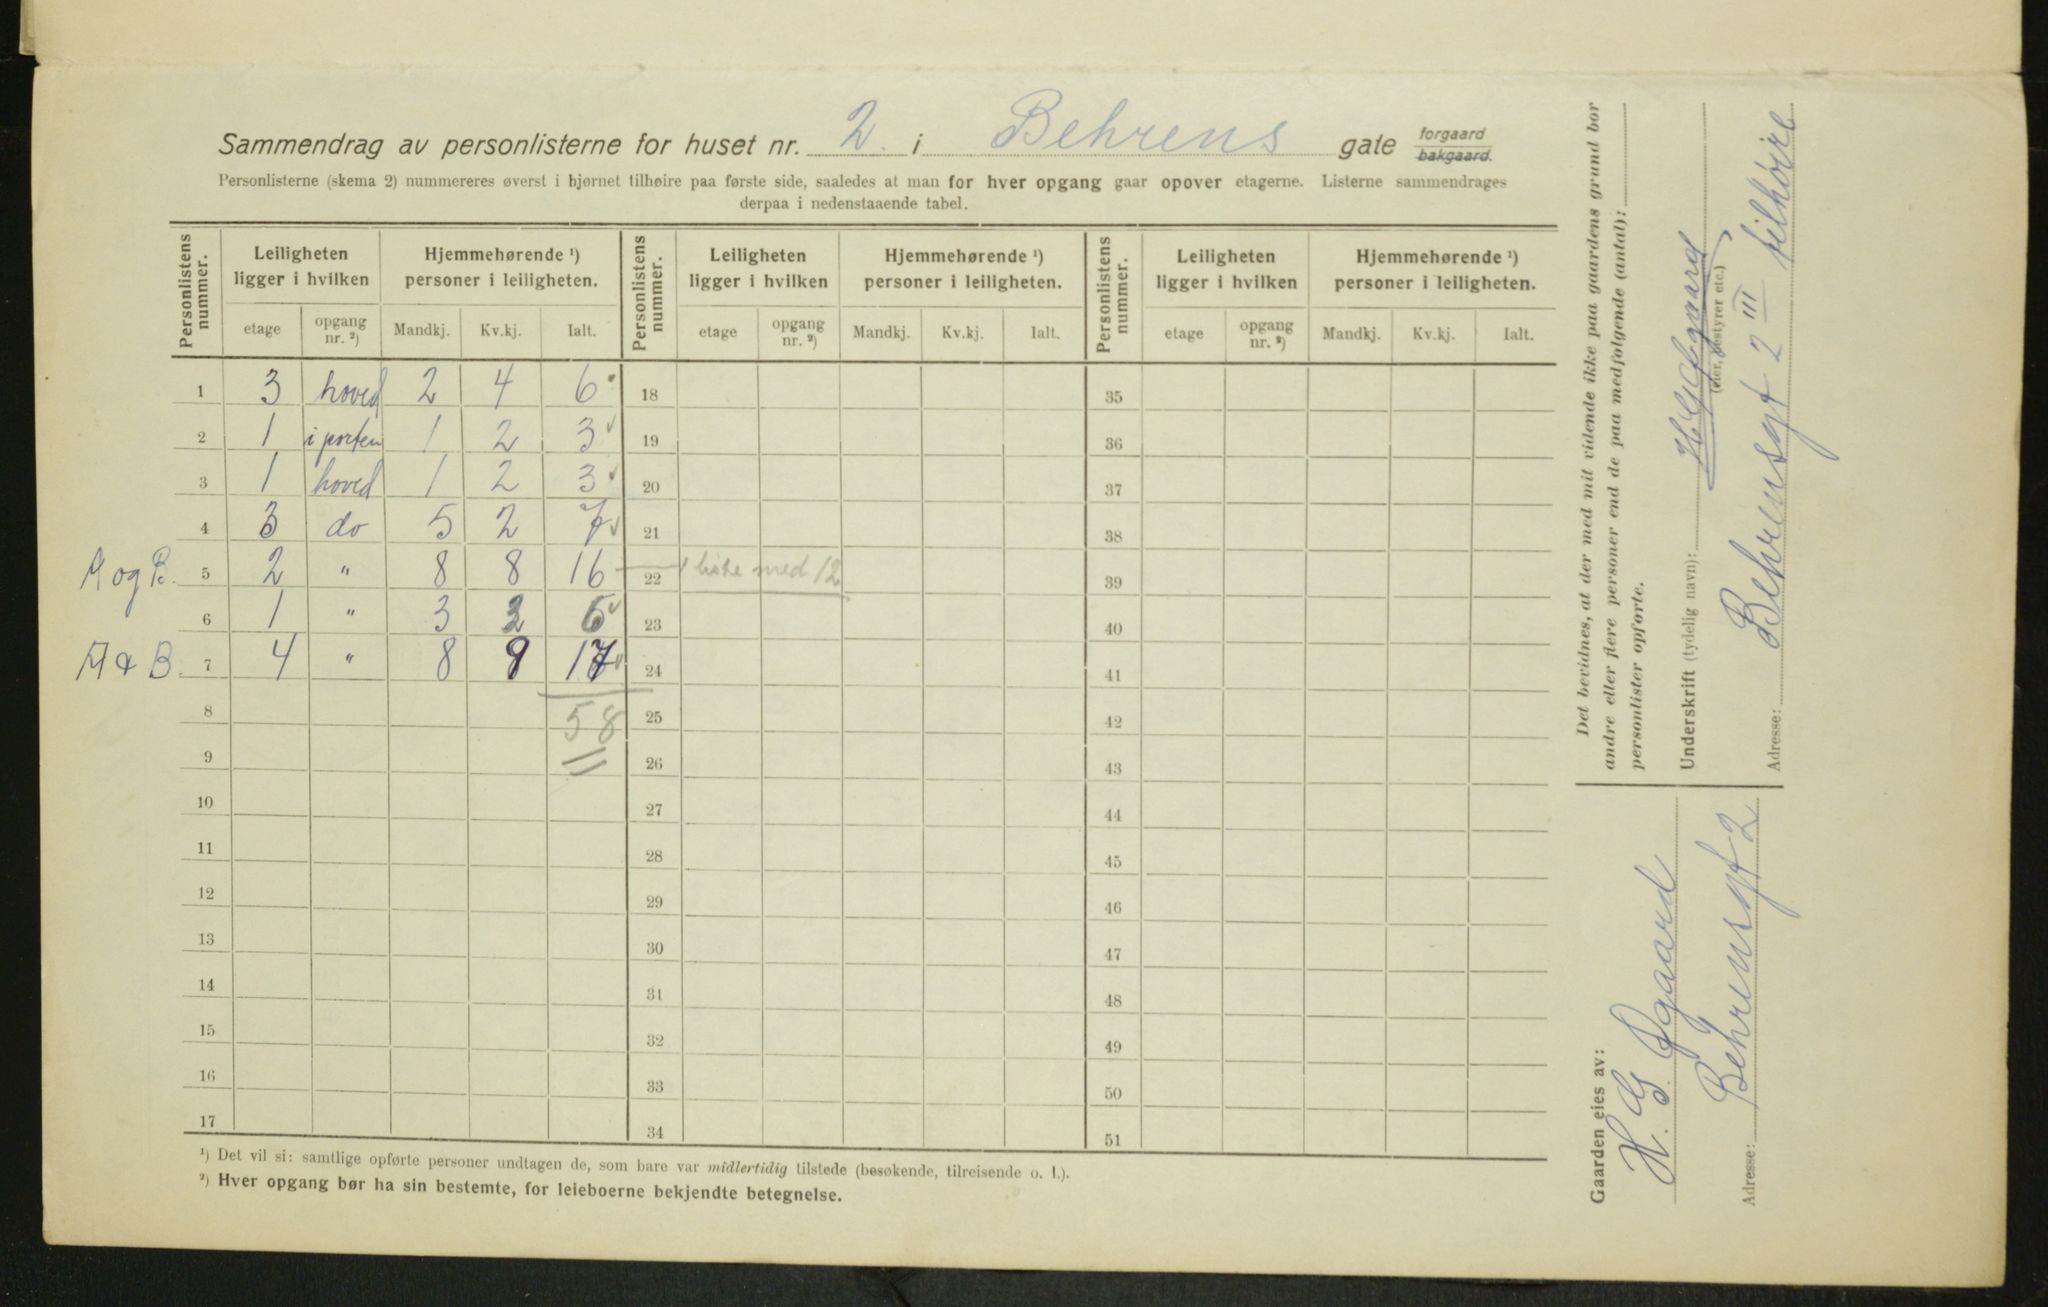 Sammendrag av personlisterne for huset nr. 2. i Behrens gate forgaard bakgaard.
Personlisterne (skema 2) nummereres øverst i hjørnet tilhøire paa første side, saaledes at man for hver opgang gaar opover etagerne. Listerne sammendrages
derpaa i nedenstaaende tabel.
Personlistens nummer. Leiligheten ligger i hvilken Hjemmehørende ¹) personer i leiligheten. Personlistens nummer. Leiligheten ligger i hvilken Hjemmehørende ¹) personer i leiligheten. Personlistens nummer. Leiligheten ligger i hvilken Hjemmehørende ¹) personer i leiligheten.
etage opgang nr. ²) Mandkj. Kv.kj. Ialt. etage opgang nr. ²) Mandkj. Kv.kj. Ialt. etage opgang nr. ²) Mandkj. Kv.kj. Ialt.
1 3 hoved 2 4 6 18 35
2 1 i porten 1 2 3 19 36
3 1 hoved 1 2 3 20 37
4 3 do 5 2 7 21 38
A og B. 5 2 " 8 8 16 22 1 liste med 12 39
6 1 " 3 6 23 40
A & B. 7 4 " 8 9 17 24 41
8 58 25 42
9 26 43
10 27 44
11 28 45
12 29 46
13 30 47
14 31 48
15 32 49
16 33 50
17 34 51
¹) Det vil si: samtlige opførte personer undtagen de, som bare var midlertidig tilstede (besøkende, tilreisende o. l.).
²) Hver opgang bør ha sin bestemte, for leieboerne bekjendte betegnelse.
Det bevidnes, at der med mit vidende ikke paa gaardens grund bor
andre eller flere personer end de paa medfølgende (antal):
personlister opførte.
Underskrift (tydelig navn): H. G. Øgaard
(eier, bestyrer etc.)
Adresse: Behrensgt 2 III tilhøire
Gaarden eies av:
H. G. Øgaard
Adresse: Behrensgt 2